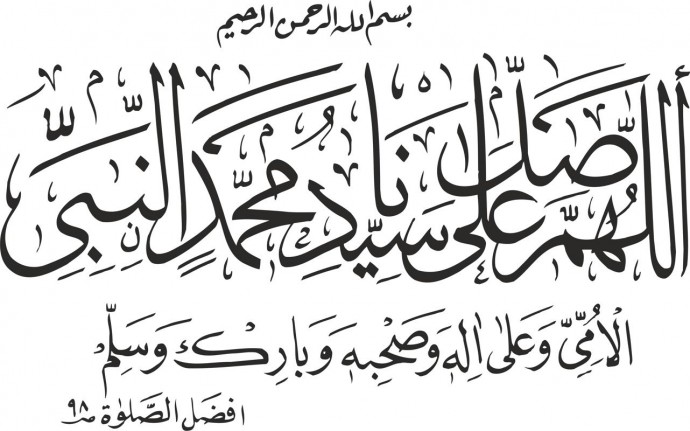 بسم الله الرحمن الرحيم
أللهم صل على سيدنا محمد النبي
الامي وعلى اله وصحبه وبارك وسلم
افضل الصلوة ص ٩٨